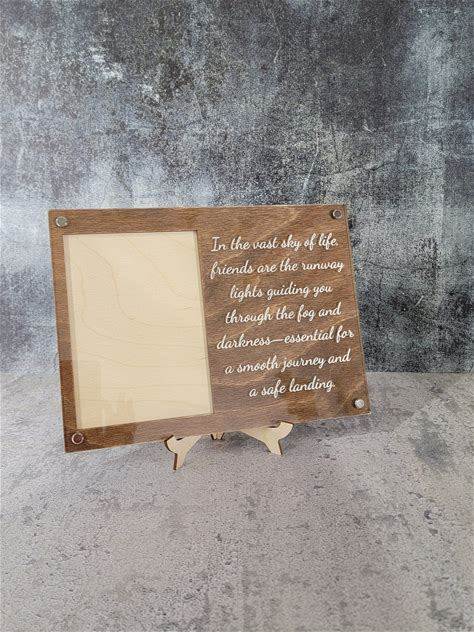 In the vast sky of life,
friends are the runway
lights guiding you
through the fog and
darkness—essential for
a smooth journey and
a safe landing.